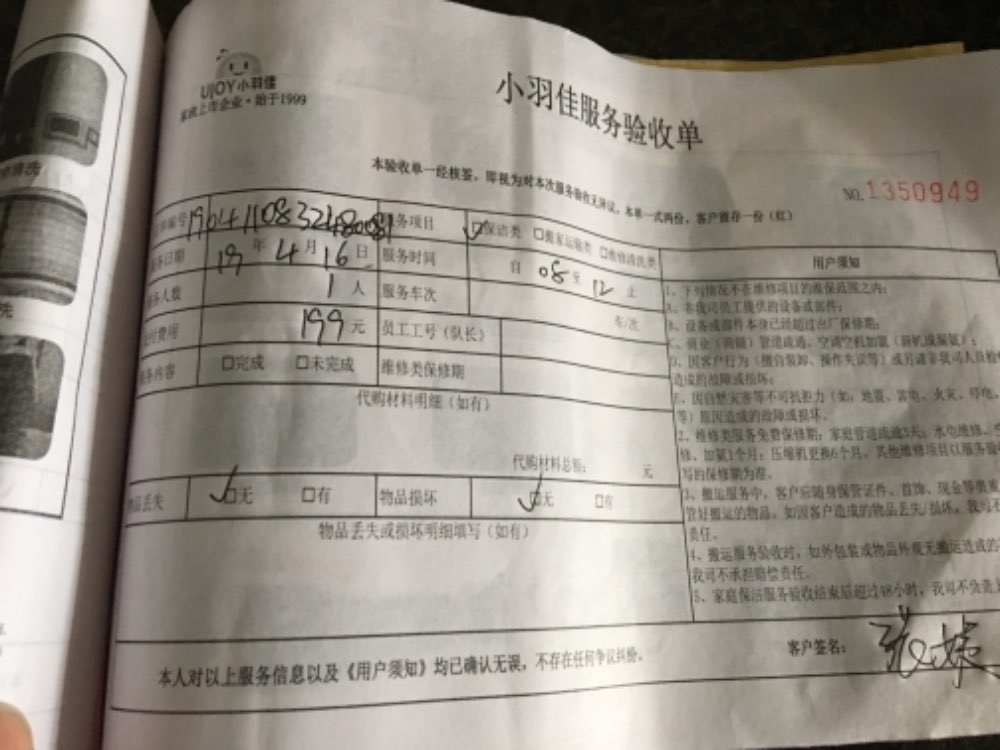 UJOY小羽佳
家政上市企业·始于1999
小羽佳服务验收单
本验收单一经核签，即视为对本次服务验收无异议，本单一式两份，客户留存一份（红）
NO.1350949
单编号
务项目 ☑保洁类 □搬家运输类 □维修清洗类
务日期 19年4月16日 服务时间 自08至12止
务人数 1人 服务车次 车/次
付费用 199元 员工工号（队长）
务内容 □完成 □未完成 维修类保修期
代购材料明细（如有）
代购材料总额： 元
物品丢失 ☑无 □有 物品损坏 ☑无 □有
物品丢失或损坏明细填写（如有）
用户须知
1、下列情况不在维修项目的维保范围之内：
A、非我司员工提供的设备或部件；
B、设备或部件本身已经超过出厂保修期；
C、商业（商铺）管道疏通、空调空机加氨（新机或漏氨）；
D、因客户行为（擅自装卸、操作失误等）或另请非我司人员检
造成的故障或损坏；
E、因自然灾害等不可抗拒力（如：地震、雷电、火灾、停电、
等）原因造成的故障或损坏。
2、维修类服务免费保修期：家庭管道疏通3天；水电维修、
修、加氨1个月；压缩机更换6个月。其他维修项目以服务验
写的保修期为准。
3、搬运服务中，客户应随身保管证件、首饰、现金等贵重
管好搬运的物品。如因客户造成的物品丢失/损坏，我司不
责任。
4、搬运服务验收时，如外包装或物品外观无搬运造成的
我司不承担赔偿责任。
5、家庭保洁服务验收结束后超过48小时，我司不负责
本人对以上服务信息以及《用户须知》均已确认无误，不存在任何争议纠纷。
客户签名：
清洗
洗